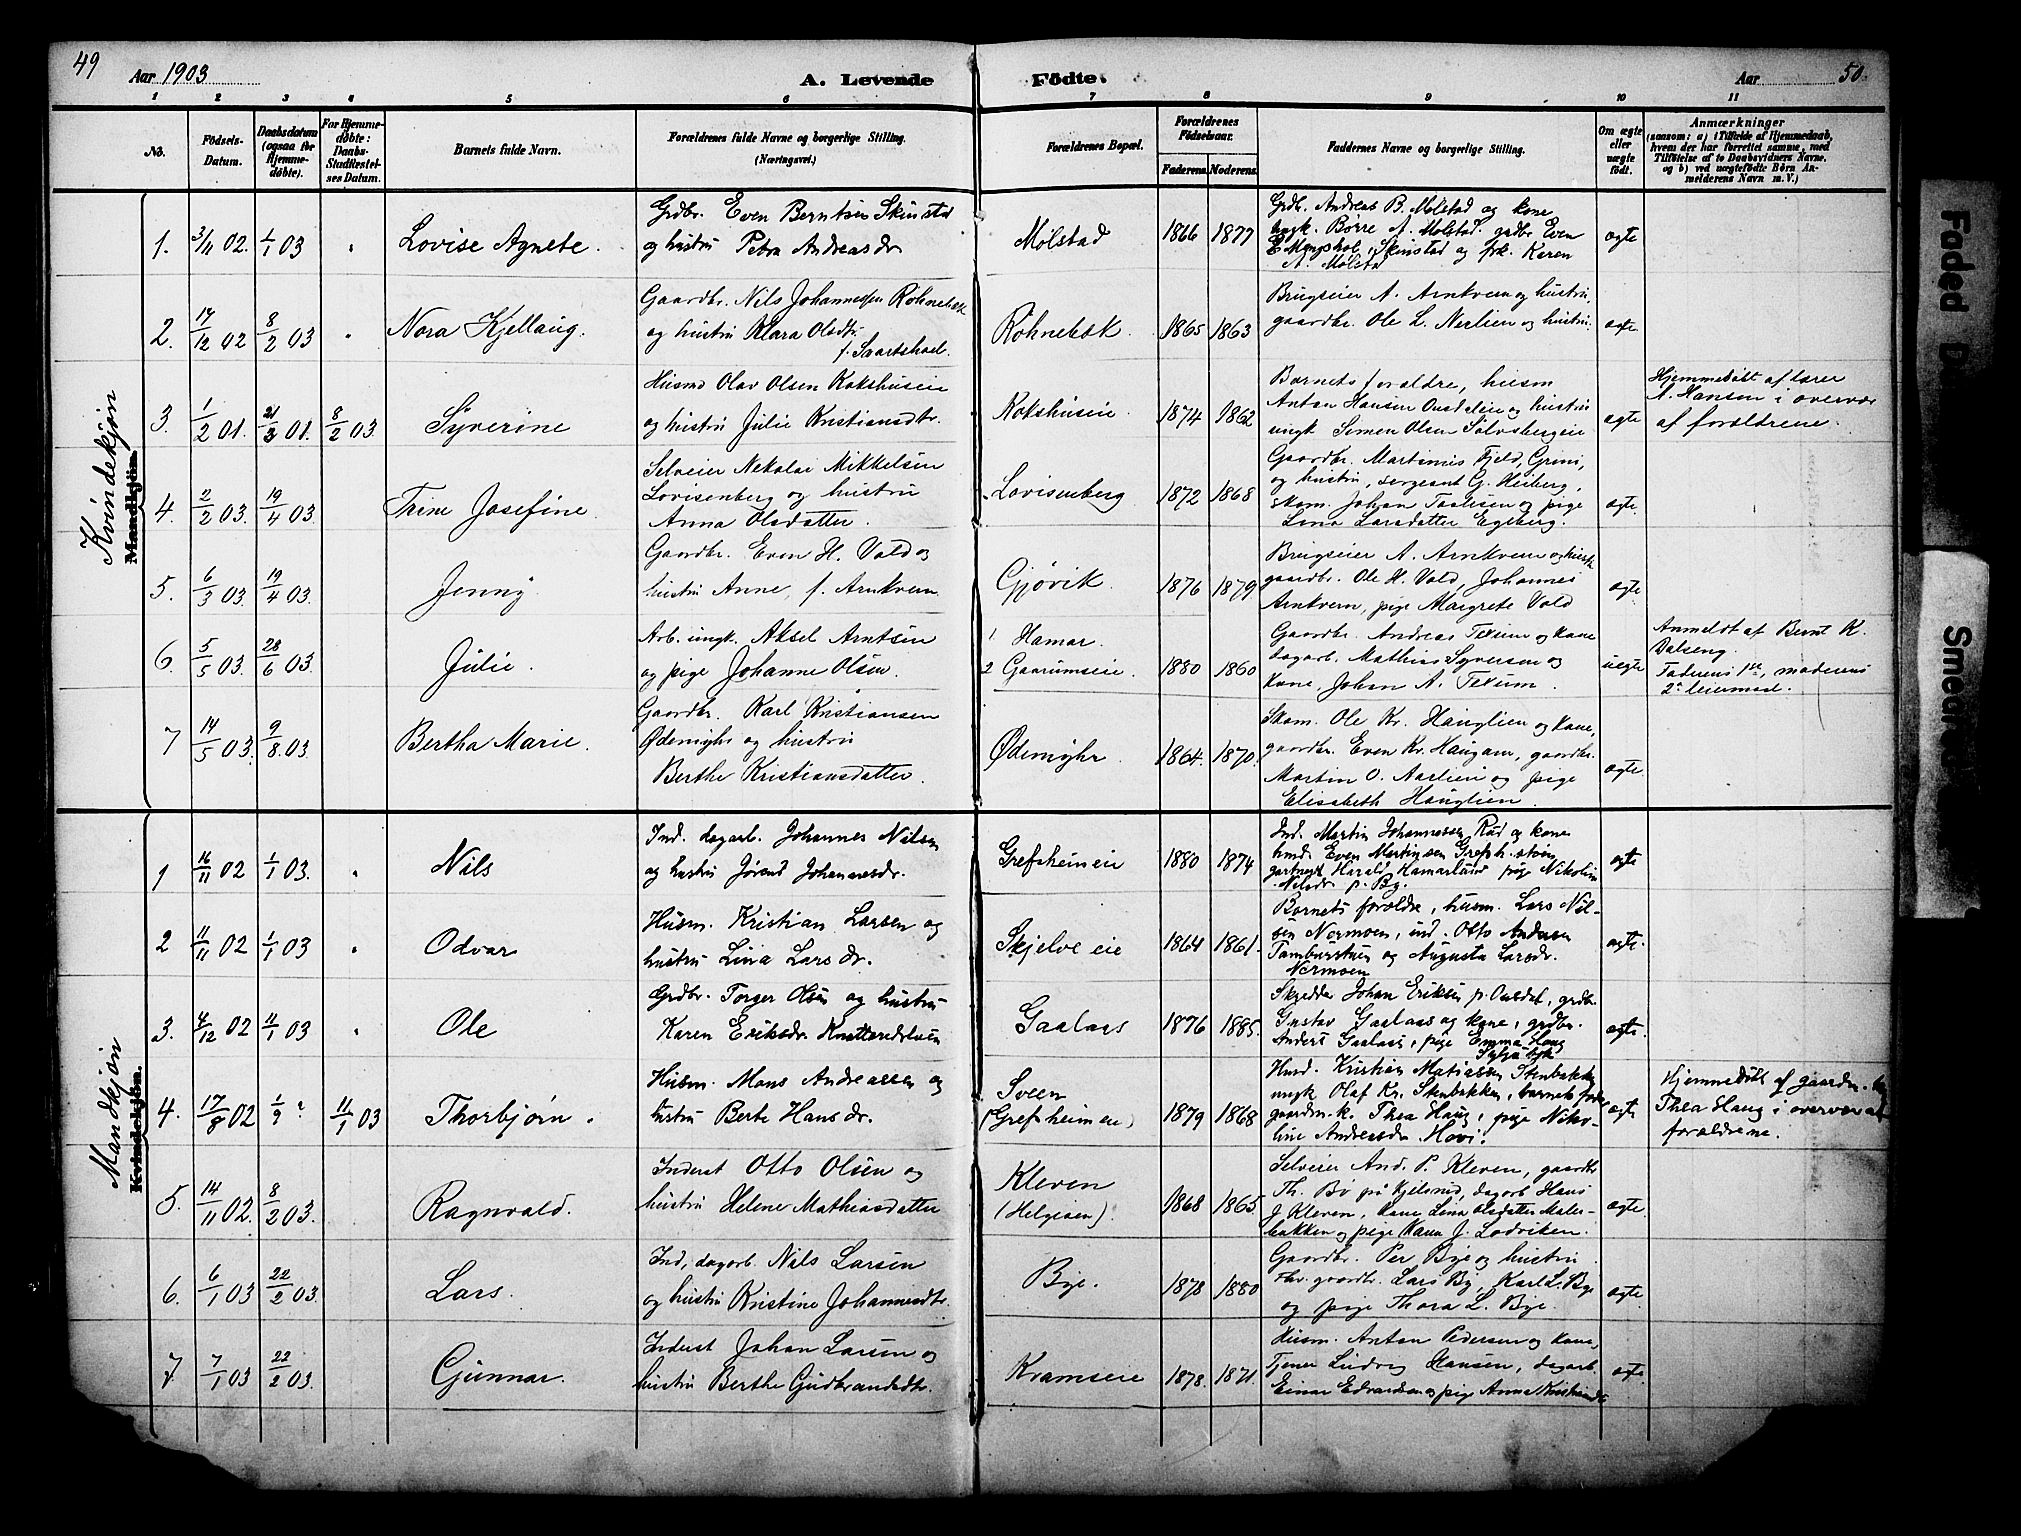 49
Aar 1903
A. Levende
Födte.
Aar
50
1 2 3 4 5 6 7 8 9 10 11
No.
Födsels-
Datum.
Daabsdatum
(ogsaa for
Hjemme-
døbte).
For Hjemme-
døbte:
Daabs-
Stadfæstel-
ses Datum.
Barnets fulde Navn.
Forældrenes fulde Navne og borgerlige Stilling.
(Næringsvei.)
Forældrenes Bopæl.
Forældrenes
Födselsaar.
Faderens. Moderens.
Faddernes Navne og borgerlige Stilling.
Om ægte
eller
uægte
født.
Anmærkninger
(saasom: a) i Tilfælde af Hjemmedaab,
hvem der har forrettet samme, med
Tilføielse af to Daabsvidners Navne,
og b) ved uægtefødte Børn An-
melderens Navn m. V.)
Kvindekjøn
Mandkjön.
1. 3/11 02. 1/1 03 " Lovise Agnete.
Grdbr. Even Berntsen Skinstad
og hustru Petra Andreasdr
Mølstad 1866 1877
Grdb. Andreas B. Mølstad og kone
ungk. Børre A. Mølstad. grdbr Even
Skinstad og frk. Karen
A. Mølstad
ægte
2. 17/12 02 8/2 03 " Nora Kjellaug.
Gaardbr. Nils Johannessen Røhnebæk
og hustru Klara Olsdtr
f. Svartshoel.
Røhnebæk. 1865 1863
Brugseier A. Arnkvern og hustru,
gaardbr. Ole L. Nerlien og hustru.
ægte.
3. 1/2 01. 21/2 01. 8/2 03. Syverine
Husmd Olav Olsen Kokshuseie
og hustru Julie Kristiansdtr.
Kokshuseie. 1874 1862
Barnets forældre, husm
Anton Hansen og hustru
ungk Simen Olsen Sølvsbergeie
ægte
Hjemmedøbt af lærer
A. Hansen i overvær
af forældrene.
4. 2/2 03. 19/4 03. Trine Josefine.
Selveier Nekolai Mikkelsen
Lovisenberg og hustru
Anna Olsdatter.
Lovisenberg 1872 1868
Gaardbr. Martinius Fjeld, Grini,
og hustru, sergeant G. Heiberg,
skom. Johan Paulsen og pige
Lina Larsdatter Egeberg.
ægte.
5. 6/3 03. 19/4 03. Jenny.
Gaardbr. Even H. Vold og
hustru Anne, f. Arnkvern
Gjøvik. 1876 1879
Brugseier A. Arnkvern og hustr.
gaardbr. Ole H. Vold, Johannes
Arnkvern, pige Margrete Vold
ægte
6. 5/5 03. 28/6 03. Julie.
Arb. ungk. Aksel Arntsen
og pige Johanne Olsen.
1 Hamar.
2 Gaarumseie. 1880 1860
Gaardbr. Andreas Texum og kone
dagarb. Mathias Syversen og
kone, Johan A. Texum.
uegte
Anmeldt af Bernt K.
Valseng.
Faderens 1ste, moderens
2. leiermaal.
7 14/5 03. 9/8 03 Bertha Marie.
Gaardbr. Karl Kristiansen
Ødemyhr og hustru
Berthe Kristiansdatter.
Ødemyhr. 1864. 1870.
Skom. Ole Kr. Hauglien og kone,
gaardbr. Even Kr. Haugan, gaardbr.
Martin O. Aarlien og pige
Elisabeth Hauglien.
ægte.
Mandkjøn
Kvindekjön.
1 16/11 02 1/1 03. " Nils
Ind. dagarb. Johannes Nilsen
og hustru Jørand Johannesdr.
Grefsheim eie 1880 1874
Ind. Martin Johannessen Rud og kone
husd. Even Martinsen Grefsh. støen
gartnergt Harald Hamarlund pige Nikoline
Nilsdr p. By.
ægte
2 11/11 02 1/1 03 " Odvar
Husm. Kristian Larsen og
hustru Lina Larsdr.
Skjelve eie 1864 1861.
Barnets forældre, husm. Lars Nil-
sen Nermoen, ind. Otto Andersen
Tamburstuen og Augusta Larsdr.
Nermoen
ægte.
3. 4/12 02 11/1 03 " Ole
Grdbr. Torger Olsen og hustru
Karen Eriksdr.
Gaalaas 1876 1885.
Skredder Johan Eriksen p. Onsdal, grdbr.
Gustav Gaalaas og kone, grdbr.
Anders Gaalaas, pige Emma Haug
ægte.
4. 17/8 02 1/9 ? 11/1 03 Thorbjørn.
Husm. Mons Andreassen og
hustru Berte Hansdr.
Sveen
(Grefsheim eie) 1879 1868
Husd. Kristian Matiassen Stenbakken
ungk Olaf Kr. Stenbakken, barnets fader
gaardm.k. Thea Haug, pige Niko-
line Andreasdr Hovi.
ægte
Hjemmedøbt af gaardm.
Thea Haug i overvær af
forældrene.
5. 14/11 02. 8/2 03. Ragnvald.
Inderst Otto Olsen og
hustru Helene Mathiasdatter
Kleven
(Helgøen). 1868 1865
Selveier And. P. Kleven, gaardbr
Th. Bø på Kjelsrud, dagarb Hans
J Kleven, kone Lina Olsdatter Maler-
bakken og pige Karen J. Lodviken.
ægte.
6. 6/1 03 22/2 03. Lars.
Ind, dagarb. Nils Larsen
og hustru Kristine Johannesdtr.
Bye. 1878 1880
Gaardbr. Per Bye og hustru
fhv. gaardbr. Lars By, Karl L. Bye
og pige Thora L. Bye.
ægte
7 7/1 03 22/2 03. Gunnar.
Inderst Johan Larsen og
hustru Berthe Gudbrandsdtr.
Kramseie 1878. 1871.
Husm. Anton Pedersen og kone,
Tjener Ludvig Hansen, dagarb.
Einar Edvardsen og pige Anna Kristiansdtr
ægte.
Faded
Smeared